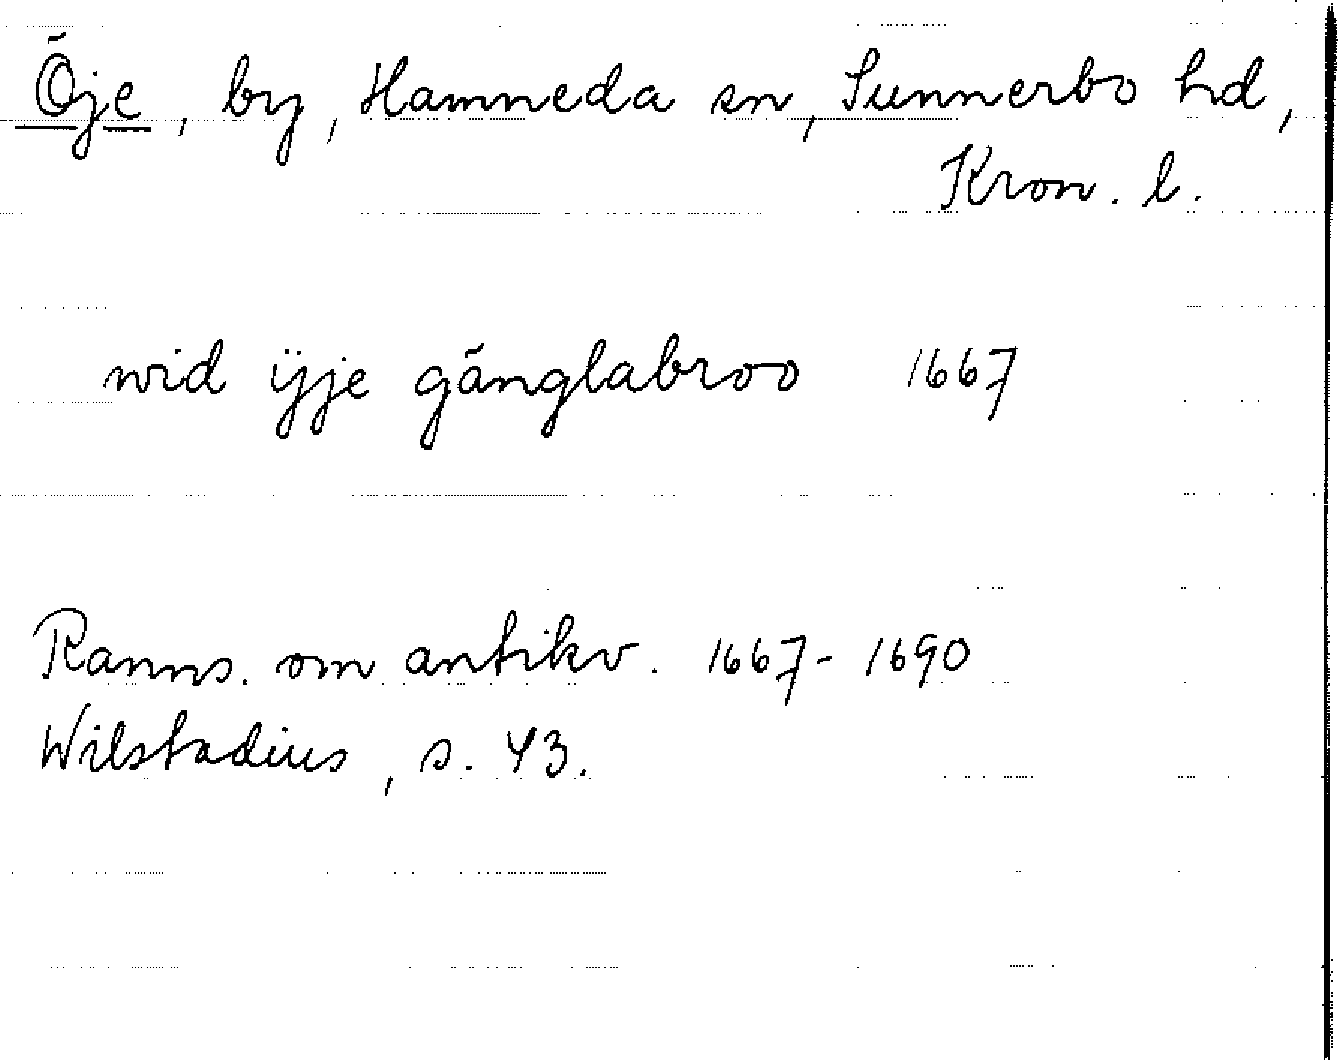 Öje, by, Hamneda sn, Sunnerbo hd,
Kron. l.
wid ÿje gänglabroo 1667
Ranns. om antikv. 1667-1690
Wilstadius, s. 43.